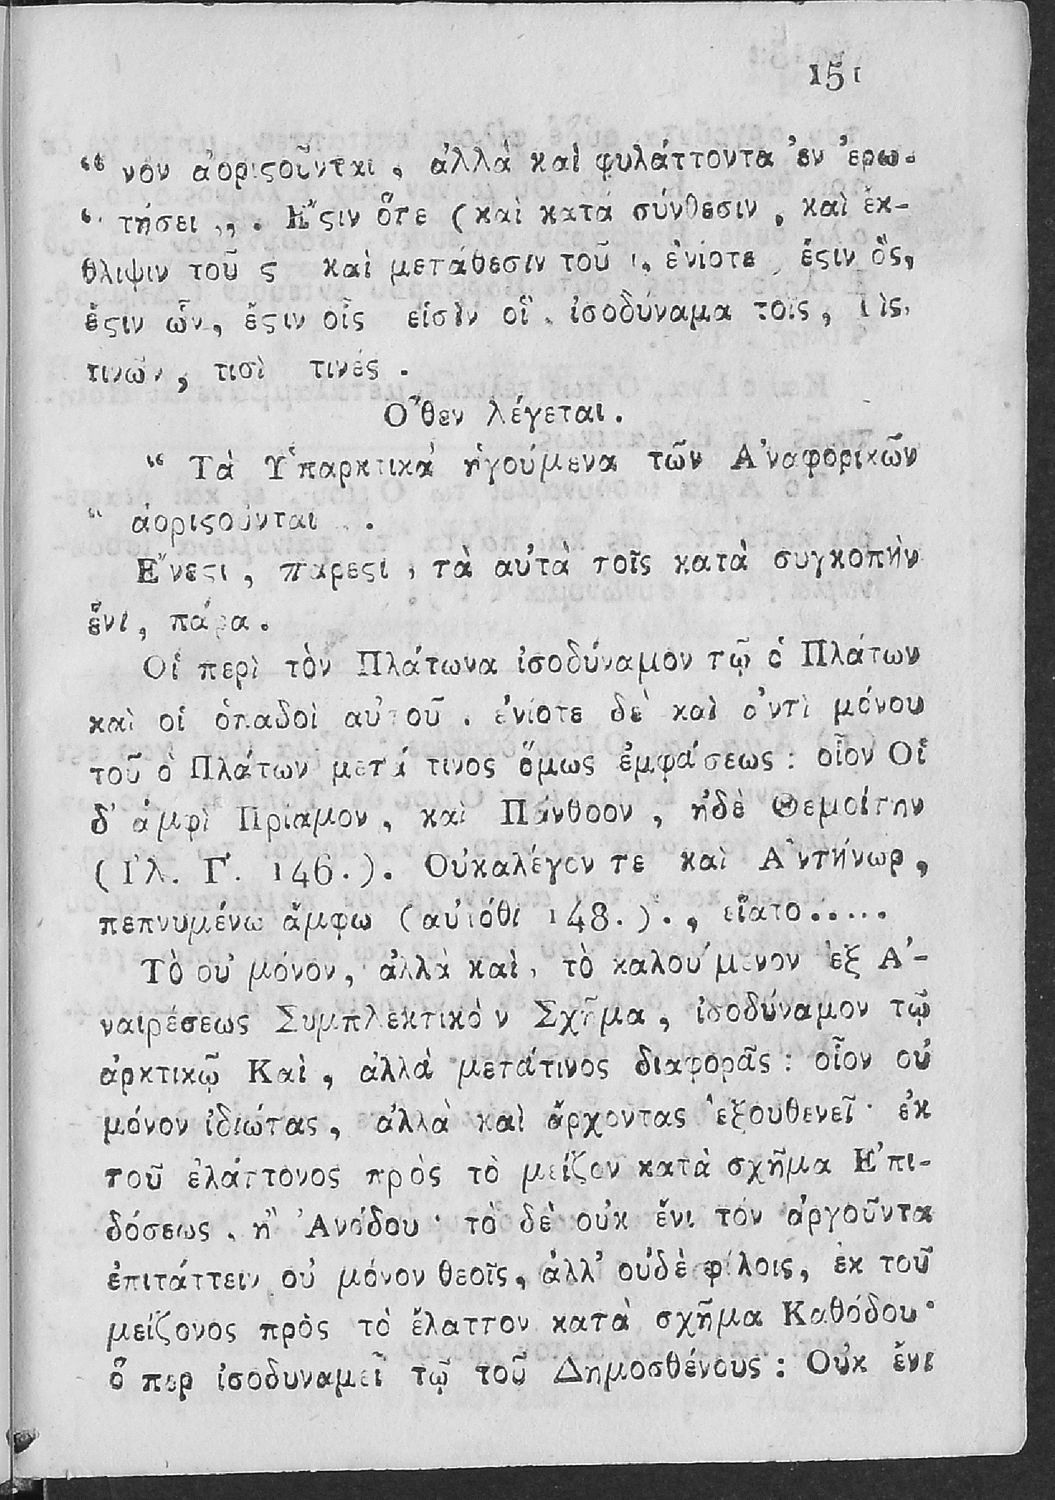 151
“ νον ἀοριϛοῦνται, ἀλλὰ καὶ φυλάττοντα ’εν ’ερω-
“ τήσει ,,. Ε῎ϛιν ὅτε (καὶ κατὰ σύνθεσιν, καὶ ἔκ-
θλιψιν τοῦ ϛ καὶ μετάθεσιν τοῦ ι, ἐνίοτε ἔϛιν ὃς,
ἔϛιν ὧν, ἔϛιν οἷς εἰσὶν οἳ, ἰσοδύναμα τοῖς, τὶς,
τινῶν, τισὶ τινές.
Ο῞θεν λέγεται.
“ Τὰ Υ῾παρκτικὰ ἡγούμενα τῶν Α᾿ναφορικῶν
“ ἀοριϛοῦνται .
Ε῎νεϛι, πάρεϛι, τὰ αὐτὰ τοῖς κατὰ συγκοπὴν
ἔνι, πάρα.
Οἱ περὶ τὸν Πλάτωνα ἰσοδύναμον τῷ ὁ Πλάτων
καὶ οἱ ὀπαδοὶ αὐτοῦ. ἐνίοτε δὲ καὶ ἀντὶ μόνου
τοῦ ὁ Πλάτων μετά τινος ὅμως ἐμφάσεως: οἷον Οἱ
δ’ ἀμφὶ Πρίαμον, καὶ Πάνθοον, ἠδὲ Θεμοίτην
(Ι᾿λ. Γ. 146.). Οὐκαλέγον τε καὶ Α᾿ντήνωρ,
πεπνυμένω ἄμφω (αὐτόθι 148.)., εἵατο.....
Τὸ οὐ μόνον, ἀλλὰ καὶ, τὸ καλούμενον ἐξ Α᾿-
ναιρέσεως Συμπλεκτικὸν Σχῆμα, ἰσοδύναμον τῷ
ἀρκτικῷ Καὶ, ἀλλὰ μετάτινος διαφορᾶς: οἷον οὐ
μόνον ἰδιώτας, ἀλλὰ καὶ ἄρχοντας ’εξουθενεῖ· ἐκ
τοῦ ἐλάττονος πρὸς τὸ μείζον κατὰ σχῆμα Ε᾿πι-
δόσεως, ἢ ᾿Ανόδου· τὸ δὲ οὐκ ἔνι τὸν ἀργοῦντα
ἐπιτάττειν οὐ μόνον θεοῖς, ἀλλ’ οὐδὲ φίλοις, ἐκ τοῦ
μείζονος πρὸς τὸ ἔλαττον κατὰ σχῆμα Καθόδου·
ὅ περ ἰσοδυναμεῖ τῷ τοῦ Δημοσθένους: Οὐκ ἔνι